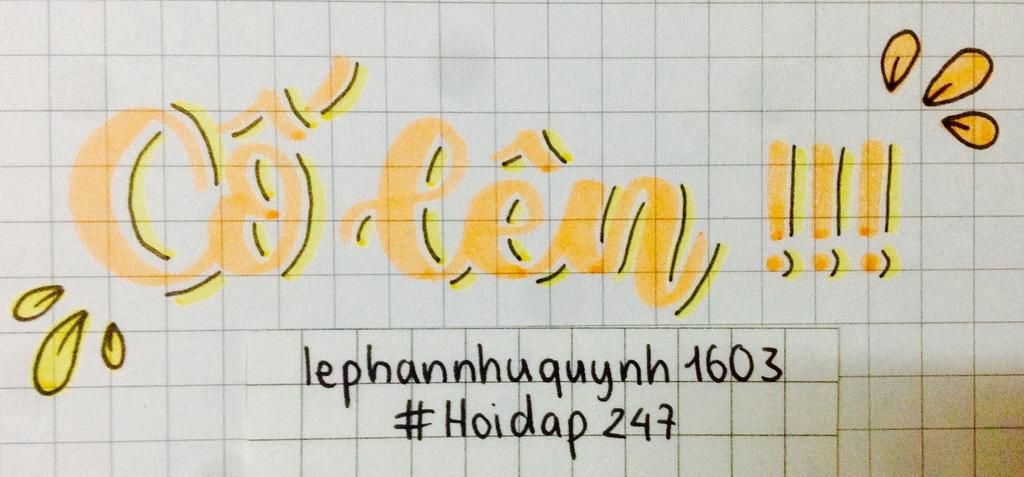 Cố lên !!!
lephannhuquynh 1603
#Hoidap 247